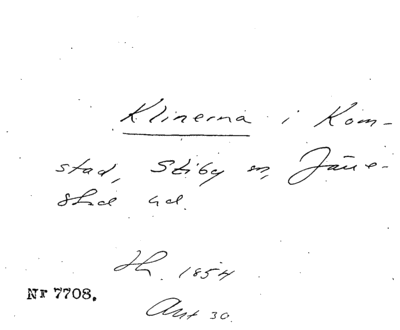 Klinerna i Kom-
stad, Stiby sn, Järre-
stad hd.
1854
Nr 7708.
Akt 30.